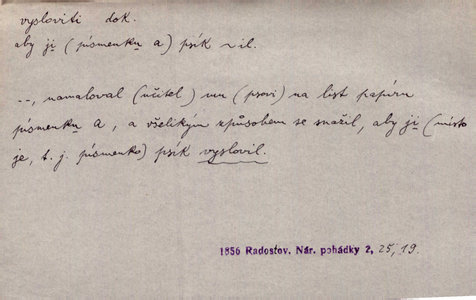 vysloviti dok.
aby ji (písmenku a) psík ~il.
--, namaloval (učitel) mu (psovi) na list papíru
písmenku a, a všelikým způsobem se snažil, aby ji (místo
je, t. j. písmenko) psík vyslovil.
1856 Radostov. Nár. pohádky 2, 25, 19.